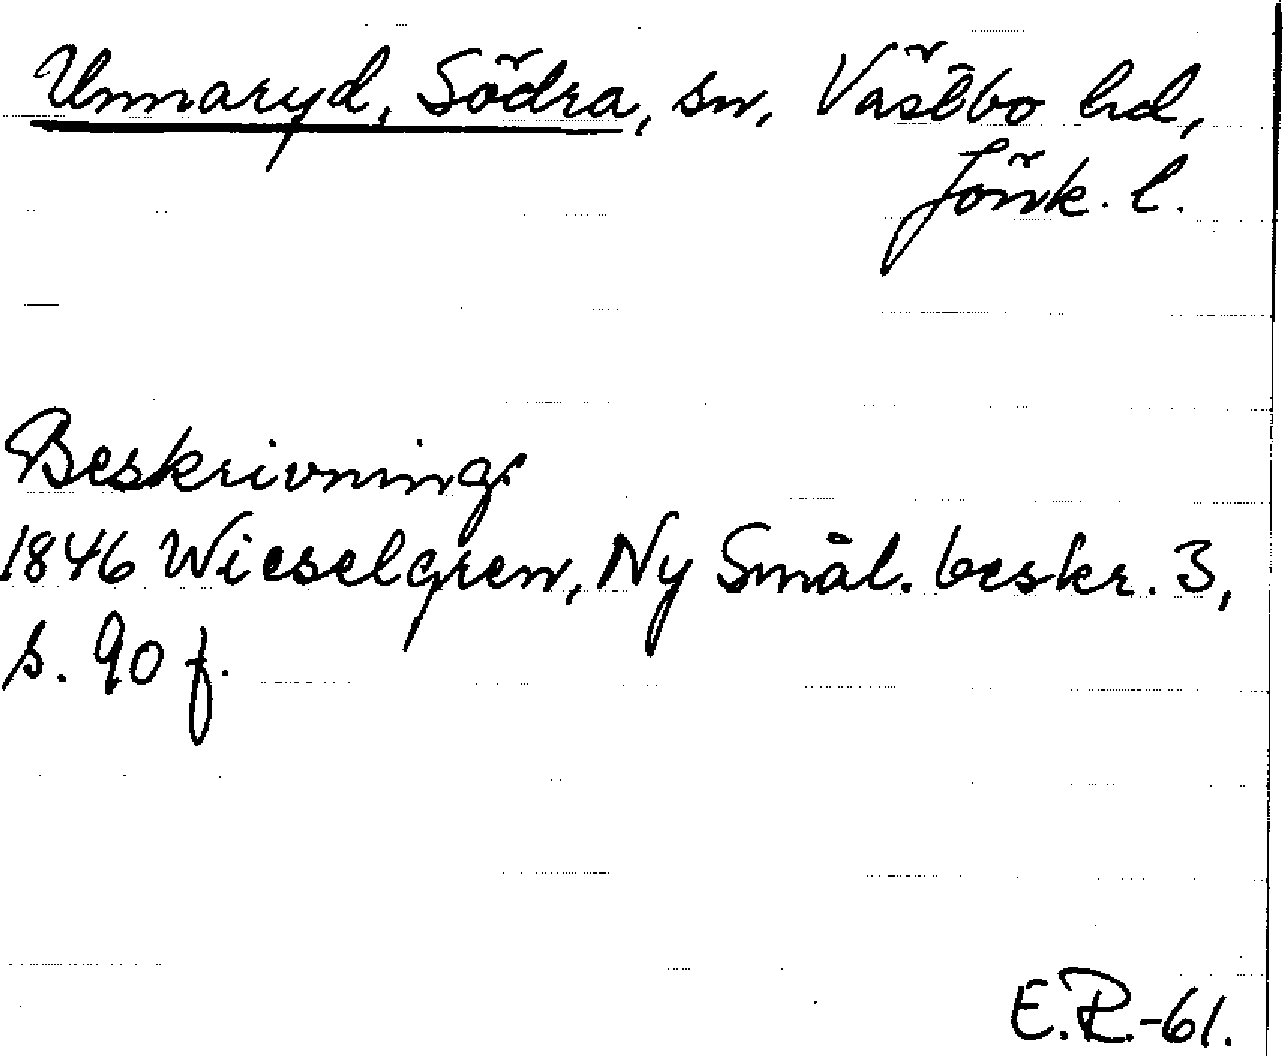 Unnaryd, Södra, sn, Västbo hd,
Jönk. l.
Beskrivning
1846 Wieselgren, Ny Smål. beskr. 3,
s. 90 f.
E.R.-61.